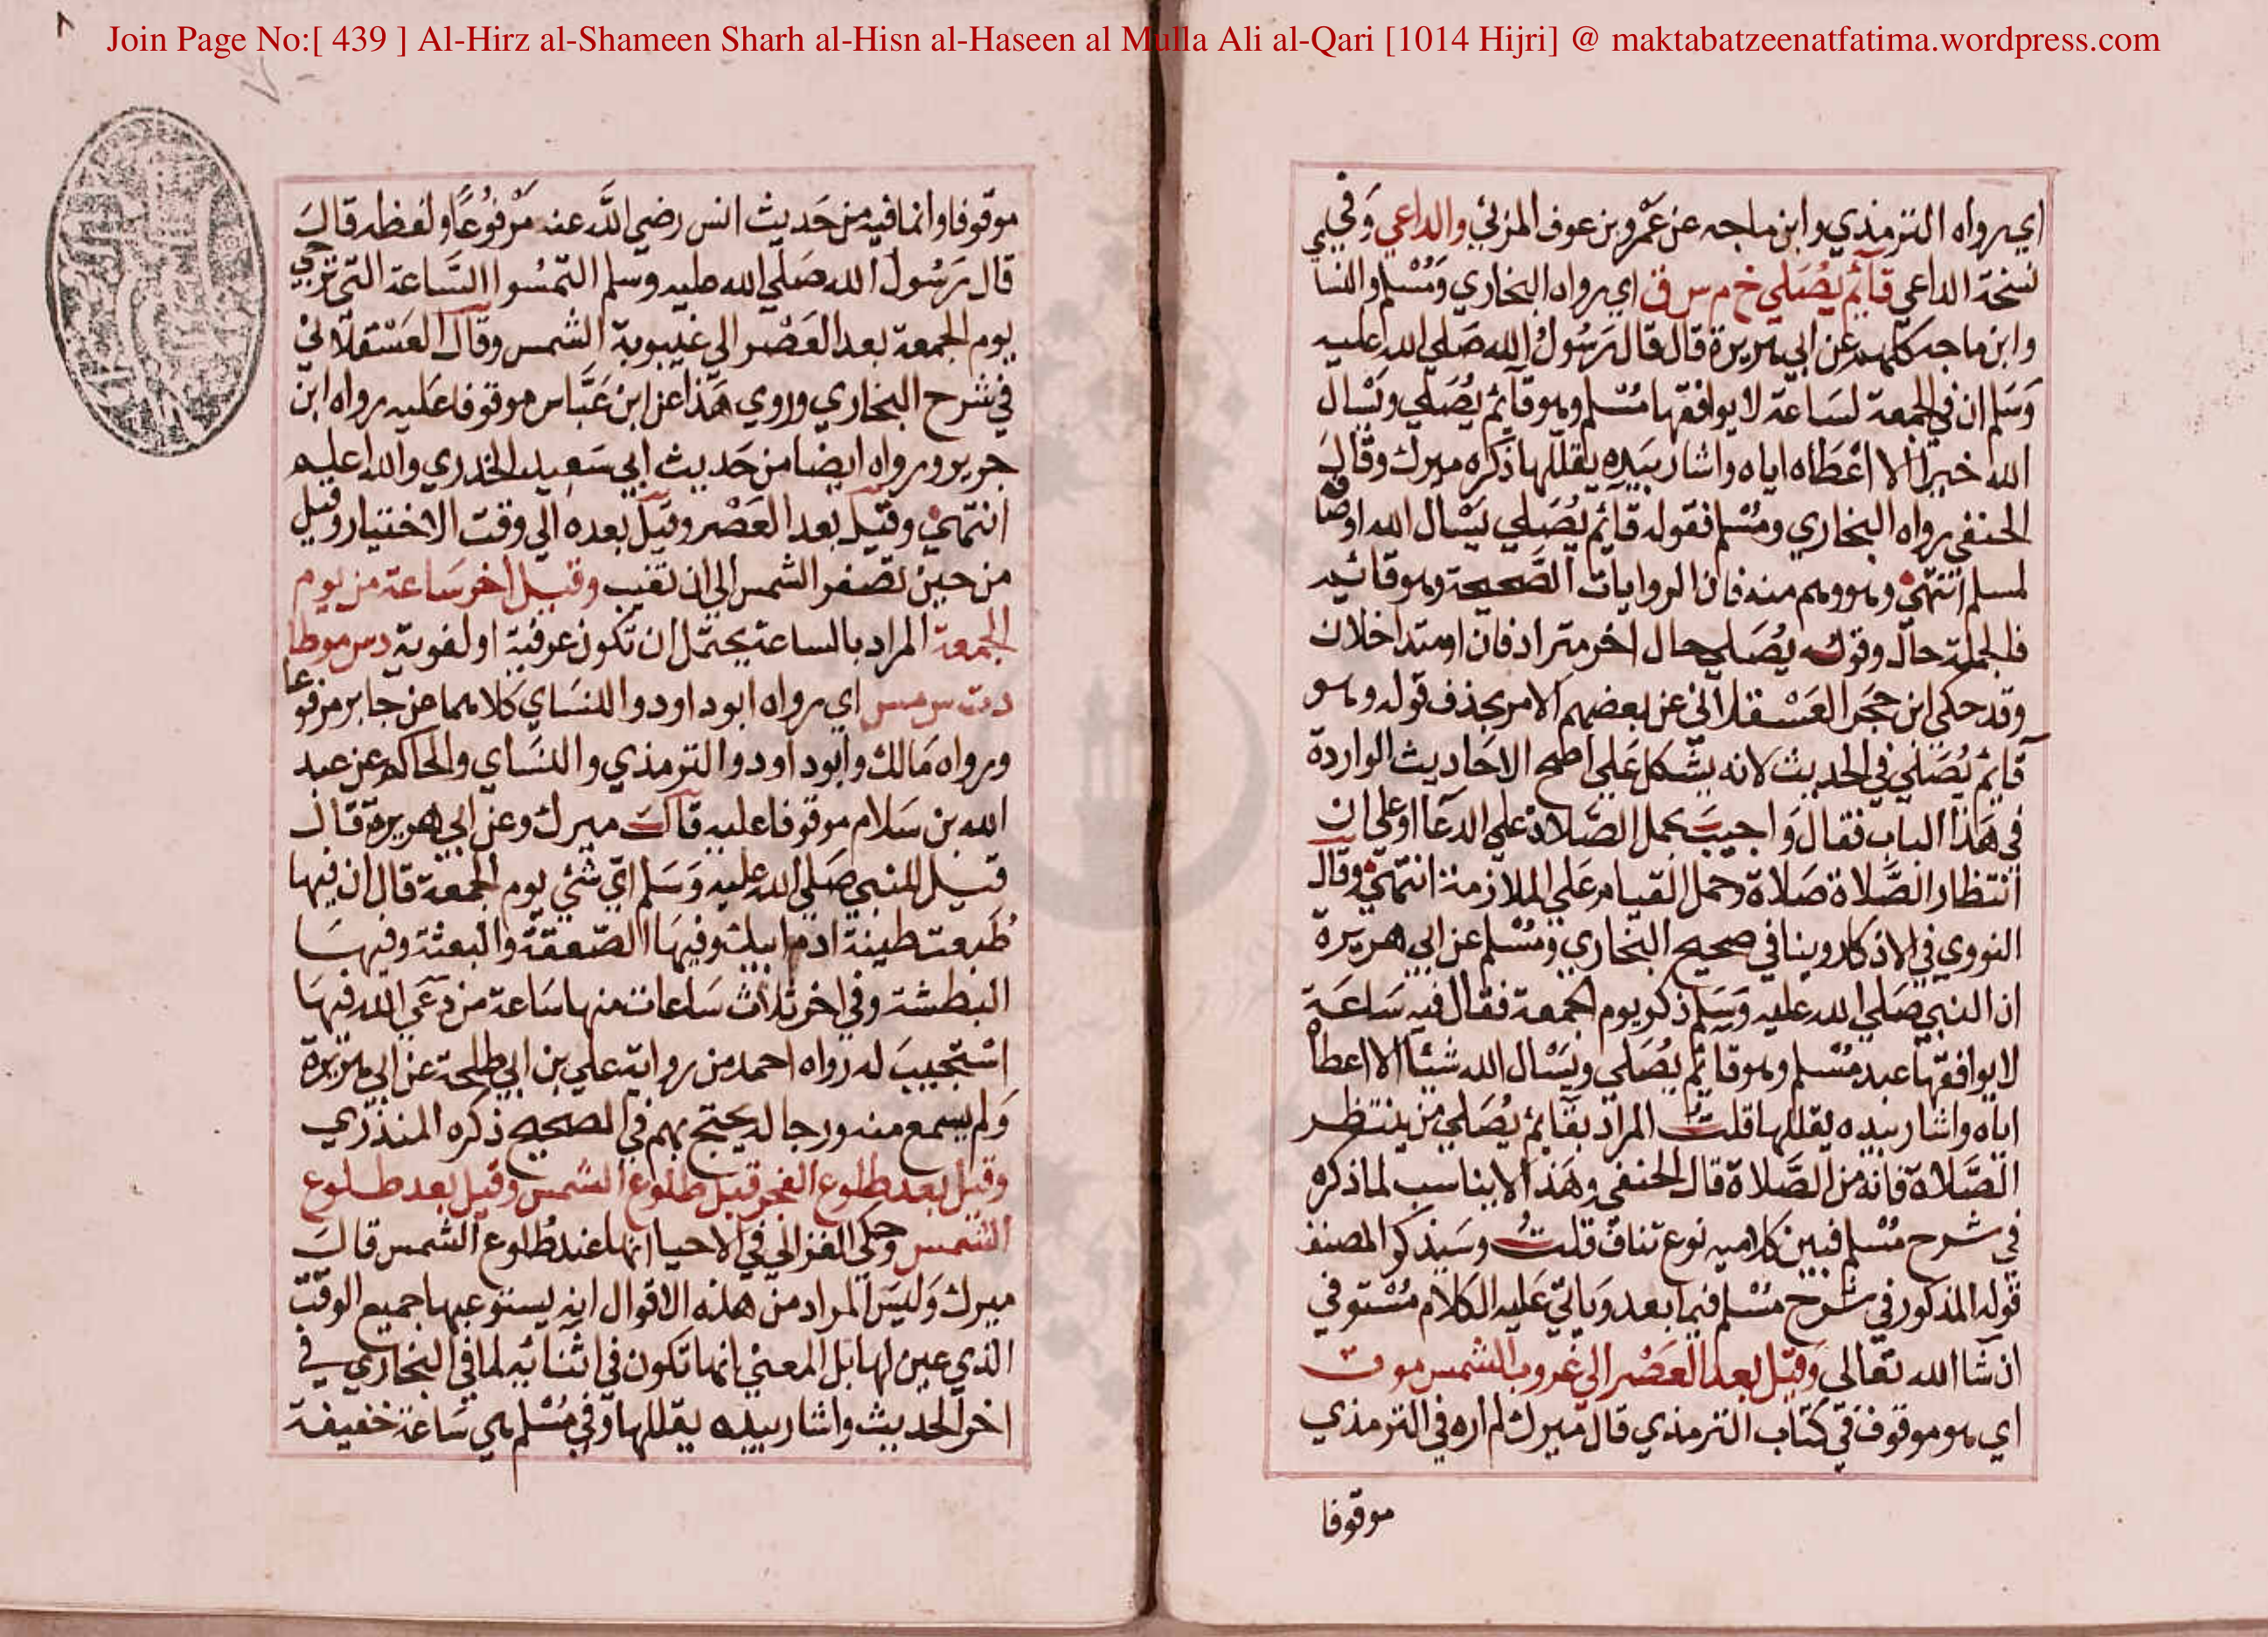 Join Page No:[ 439 ] Al-Hirz al-Shameen Sharh al-Hisn al-Haseen al Mulla Ali al-Qari [1014 Hijri] @ maktabatzeenatfatima.wordpress.com
اي رواه الترمذي وابن ماجه عن عمرو بن عوف المزني والداعي وفي
نسخة الداعي قائم يصلي خ م س ق اي رواه البخاري ومسلم والنسا
وابن ماجه كلهم عن ابي هريرة قال قال رسول الله صلي الله عليه
وسلم ان في الجمعة لساعة لا يوافقها مسلم وهو قائم يصلي ويسال
الله خيرا الا اعطاه اياه واشار بيده يقللها ذكره ميرك وقال
الحنفي رواه البخاري ومسلم فقوله قائم يصلي يسال الله اوصا
لمسلم انتهي وهو وهم منه فان الروايات الصحيحة وهو قائم
فالجملة حال وقوله يصلي حال اخر مترادفان او متداخلان
وقد حكي ابن حجر العسقلاني عن بعضهم الامر بحذف قوله وهو
قائم يصلي في الحديث لانه يشكل علي اصح الاحاديث الواردة
في هذا الباب فقال واجيب بحمل الصلاة علي الدعا او علي ان
انتظار الصلاة صلاة وحمل القيام علي الملازمة انتهي وقال
النووي في الاذكار روينا في صحيح البخاري ومسلم عن ابي هريرة
ان النبي صلي الله عليه وسلم ذكر يوم الجمعة فقال فيه ساعة
لا يوافقها عبد مسلم وهو قائم يصلي ويسال الله شيئا الا اعطاه
اياه واشار بيده يقللها قلت المراد بقائم يصلي من ينتظر
الصلاة فانه من الصلاة قال الحنفي وهذا لا يناسب لما ذكره
في شرح مسلم فبين كلاميه نوع تناف قلت وسيذكر المصنف
قوله المذكور في شرح مسلم فيما بعد وياتي عليه الكلام مستوفي
ان شا الله تعالي وقيل بعد العصر الي غروب الشمس مو ت
اي هو موقوف في كتاب الترمذي قال ميرك لم اره في الترمذي
موقوفا
موقوفا وانما فيه من حديث انس رضي الله عنه مرفوعا ولفظه قال
قال رسول الله صلي الله عليه وسلم التمسوا الساعة التي ترجي
يوم الجمعة بعد العصر الي غيبوبة الشمس وقال العسقلاني
في شرح البخاري وروي هذا عن ابن عباس موقوفا عليه رواه ابن
جرير ورواه ايضا من حديث ابي سعيد الخدري والله اعلم
انتهي وقيل بعد العصر وقيل بعده الي وقت الاختيار وقيل
من حين تصفر الشمس الي ان تغيب وقيل اخر ساعة من يوم
الجمعة المراد بالساعة يحتمل ان تكون عرفية او لغوية د س موطا
د ت س مس اي رواه ابو داود والنساي كلاهما عن جابر مرفوعا
ورواه مالك وابو داود والترمذي والنساي والحاكم عن عبد
الله بن سلام موقوفا عليه قال ميرك وعن ابي هريرة قال
قيل للنبي صلي الله عليه وسلم اي شئ يوم الجمعة قال ان فيها
طبعت طينة ادم ابيك وفيها الصعقة والبعثة وفيها
البطشة وفي اخر ثلاث ساعات منها ساعة من دعي الله فيها
استجيب له رواه احمد من رواية علي بن ابي طلحة عن ابي هريرة
ولم يسمع منه ورجاله يحتج بهم في الصحيح ذكره المنذري
وقيل بعد طلوع الفجر قبل طلوع الشمس وقيل بعد طلوع
الشمس وحكي الغزالي في الاحيا انها عند طلوع الشمس قال
ميرك وليس المراد من هذه الاقوال انه يستوعبها جميع الوقت
الذي عين لها بل المعني انها تكون في اثنائه لما في البخاري في
اخر الحديث واشار بيده يقللها وفي مسلم هي ساعة خفيفة